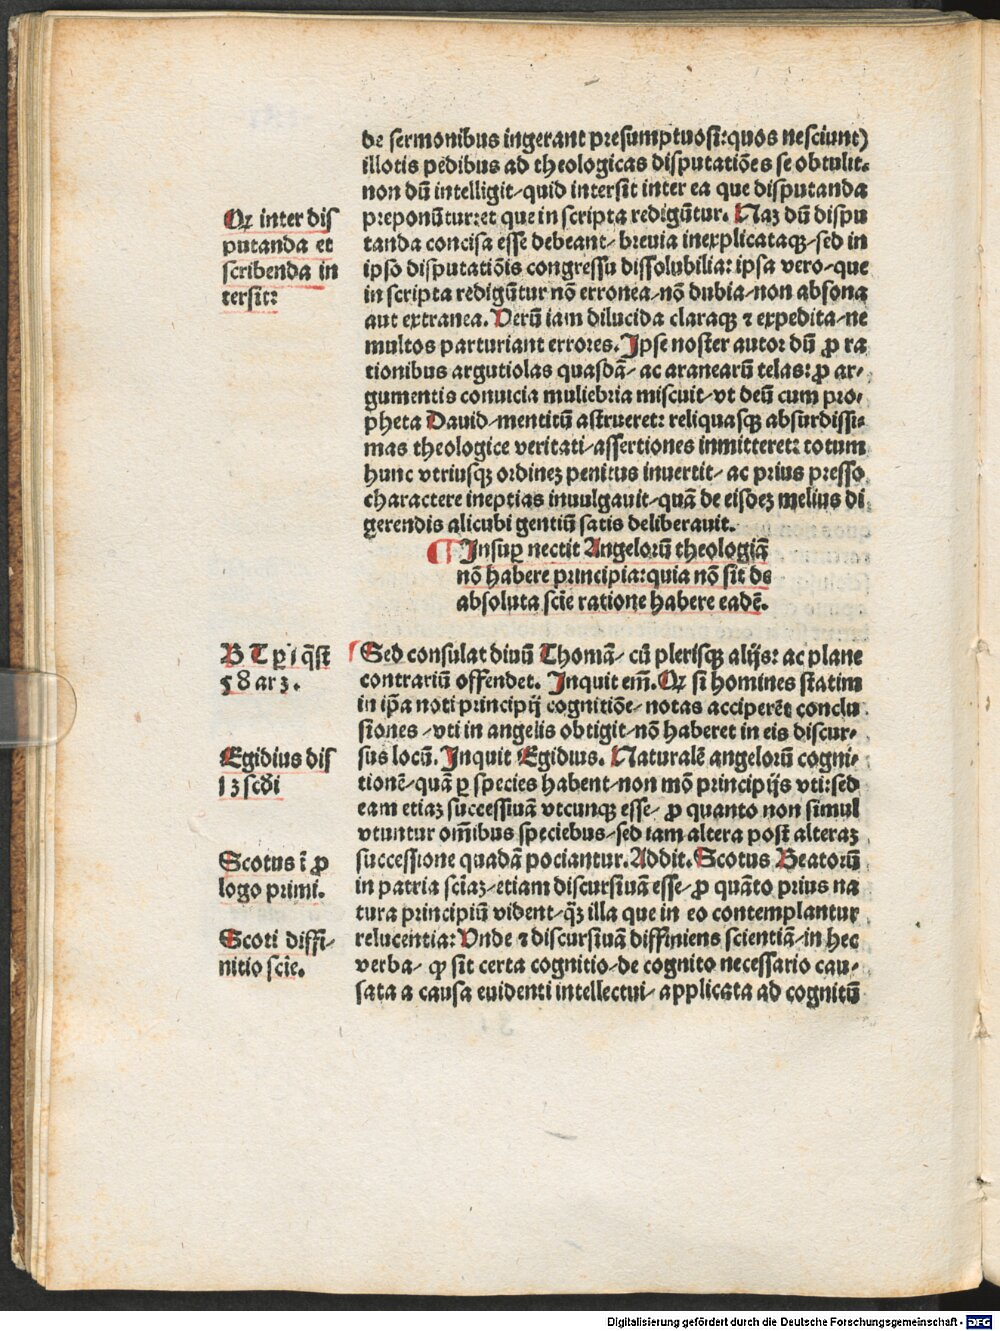 de sermonibus ingerant presumptuosi:quos nesciunt)
illotis pedibus ad theologicas disputatiōes se obtulit.
non dū intelligit/quid intersit inter ea que disputanda
preponūtur:et que in scripta redigūtur. Naꝫ dū dispu
tanda concisa esse debeant/breuia inexplicataqꝫ/sed in
ipso disputatiōis congressu dissolubilia: ipsa vero/que
in scripta redigūtur nō erronea/nō dubia/non absona
aut extranea. Verū iam dilucida claraqꝫ ⁊ expedita/ne
multos parturiant errores. Ipse noster autor dū ꝓ ra
tionibus argutiolas quasdā/ ac aranearū telas: ꝓ ar/
gumentis conuicia muliebria miscuit/vt deū cum pro/
pheta Dauid/mentitū astrueret: reliquasqꝫ absurdissi/
mas theologice veritati/assertiones inmitteret: totum
hunc vtriusqꝫ ordineꝫ penitus inuertit/ ac prius presso
charactere ineptias inuulgauit/quā de eisdeꝫ melius di
gerendis alicubi gentiū satis deliberauit.
Qꝝ inter dis
putanda et
scribenda in
tersit:
¶ Insuꝑ nectit Angelorū theologiā
nō habere principia:quia nō sit de
absoluta scīe ratione habere eadē.
B T ꝑ i q̄st
58 ar 3.
Sed consulat diuū Thomā/ cū plerisqꝫ alijs: ac plane
contrariū offendet. Inquit em̄. Qꝝ si homines statim
in ip̄a noti principij cognitiōe/notas acciperēt conclu
siones /vti in angelis obtigit/nō haberet in eis discur/
sus locū. Inquit Egidius. Naturalē angelorū cogni/
tionē/quā ꝑ species habent/non mō principijs vti:sed
eam etiaꝫ successiuā vtcunqꝫ esse/ ꝓ quanto non simul
vtuntur om̄ibus speciebus/sed iam altera post alteraꝫ
successione quadā pociantur. Addit. Scotus Beatorū
in patria sciaꝫ/etiam discursiuā esse/ ꝓ quāto prius na
tura principiū vident/q̄ꝫ illa que in eo contemplantur
relucentia: Vnde ⁊ discursiuā diffiniens scientiā/in hec
verba/ ꝙ sit certa cognitio/de cognito necessario cau/
sata a causa euidenti intellectui/ applicata ad cognitū
Egidius dis
13 scd̄i
Scotus ī ꝓ
logo primi.
Scoti diffi/
nitio scīe.
Digitalisierung gefördert durch die Deutsche Forschungsgemeinschaft - DFG